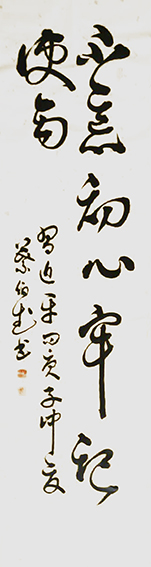 不忘初心牢記
使命
習近平 庚子仲夏
蔡伯武書